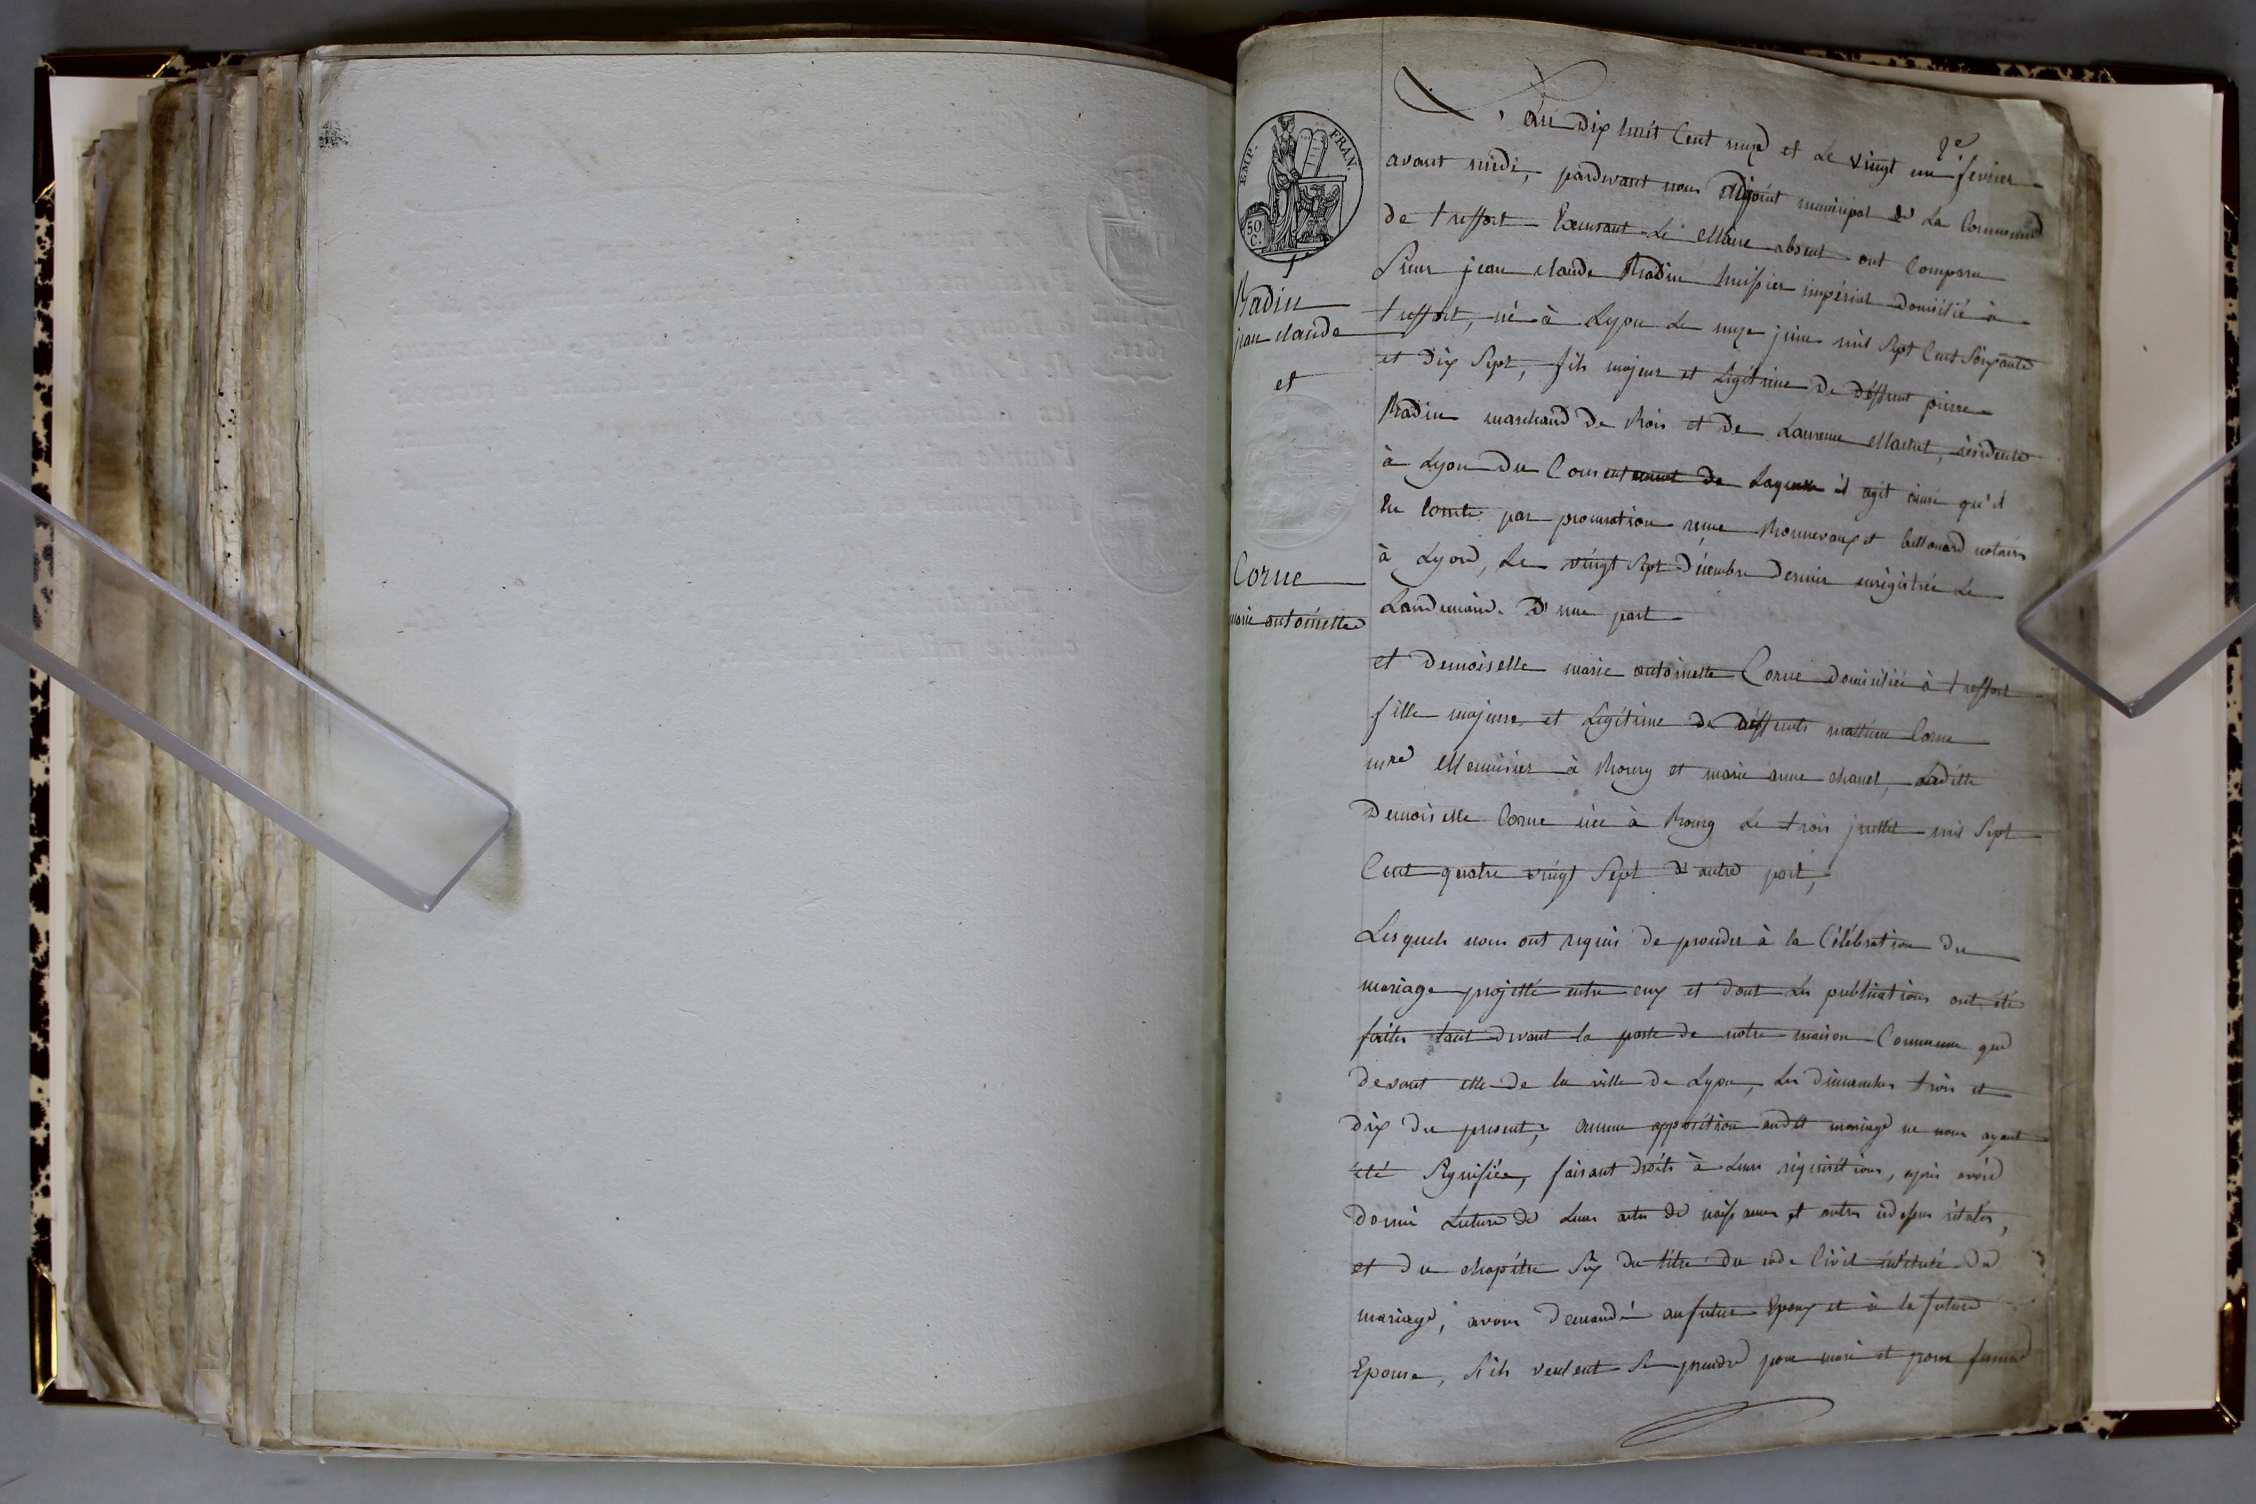 EMP. FRAN.
50 C.
Badin
jean claude
et
Corne
marie antoinette
L'an dix huit Cent onze et Le vingt un fevrier
avant midi, pardevant nous adjoint municipal de La Commune
de treffort Excusant Le Maire absent ont Comparu
Sieur jean claude Badin huissier impérial domicilié à
treffort, né à Lyon Le onze juin mil Sept Cent Soixante
et dix Sept, fils majeur et Légitime de deffunt pierre
Badin marchand de Bois et de Laurence résidente
à Lyon du Consentement de Laquelle il agit ainsi qu'il
En Conste par procuration reçue Bonnevaux et notaires
à Lyon, Le vingt Sept décembre dernier enregistrée Le
Landemain. D'une part
et demoiselle marie antoinette Corne domiciliée à treffort
fille majeure et Légitime de deffunts mathieu Corne
mre Menuisier à Bourg et marie anne chanel, Laditte
Demoiselle Corne née à Bourg Le trois juillet mil Sept
Cent quatre vingt Sept d'autre part,
Lesquels nous ont requis de proceder à la Célébration du
mariage projetté entre eux et dont Les publications ont été
faites tant devant la porte de notre maison Commune que
devant elle de la ville de Lyon, Les dimanches trois et
dix du present, aucune opposition audit mariage ne nous ayant
été Signifiée, faisant droits à Leurs réquisitions, après avoir
donné Lecture de Leurs actes de naissances et autres cidessus rélatés,
et du chapitre Six du titre du code Civil intitulé du
mariage, avons demandé au futur Epoux et à la future
Epouse, S'ils veulent Se prendre pour mari et pour femme